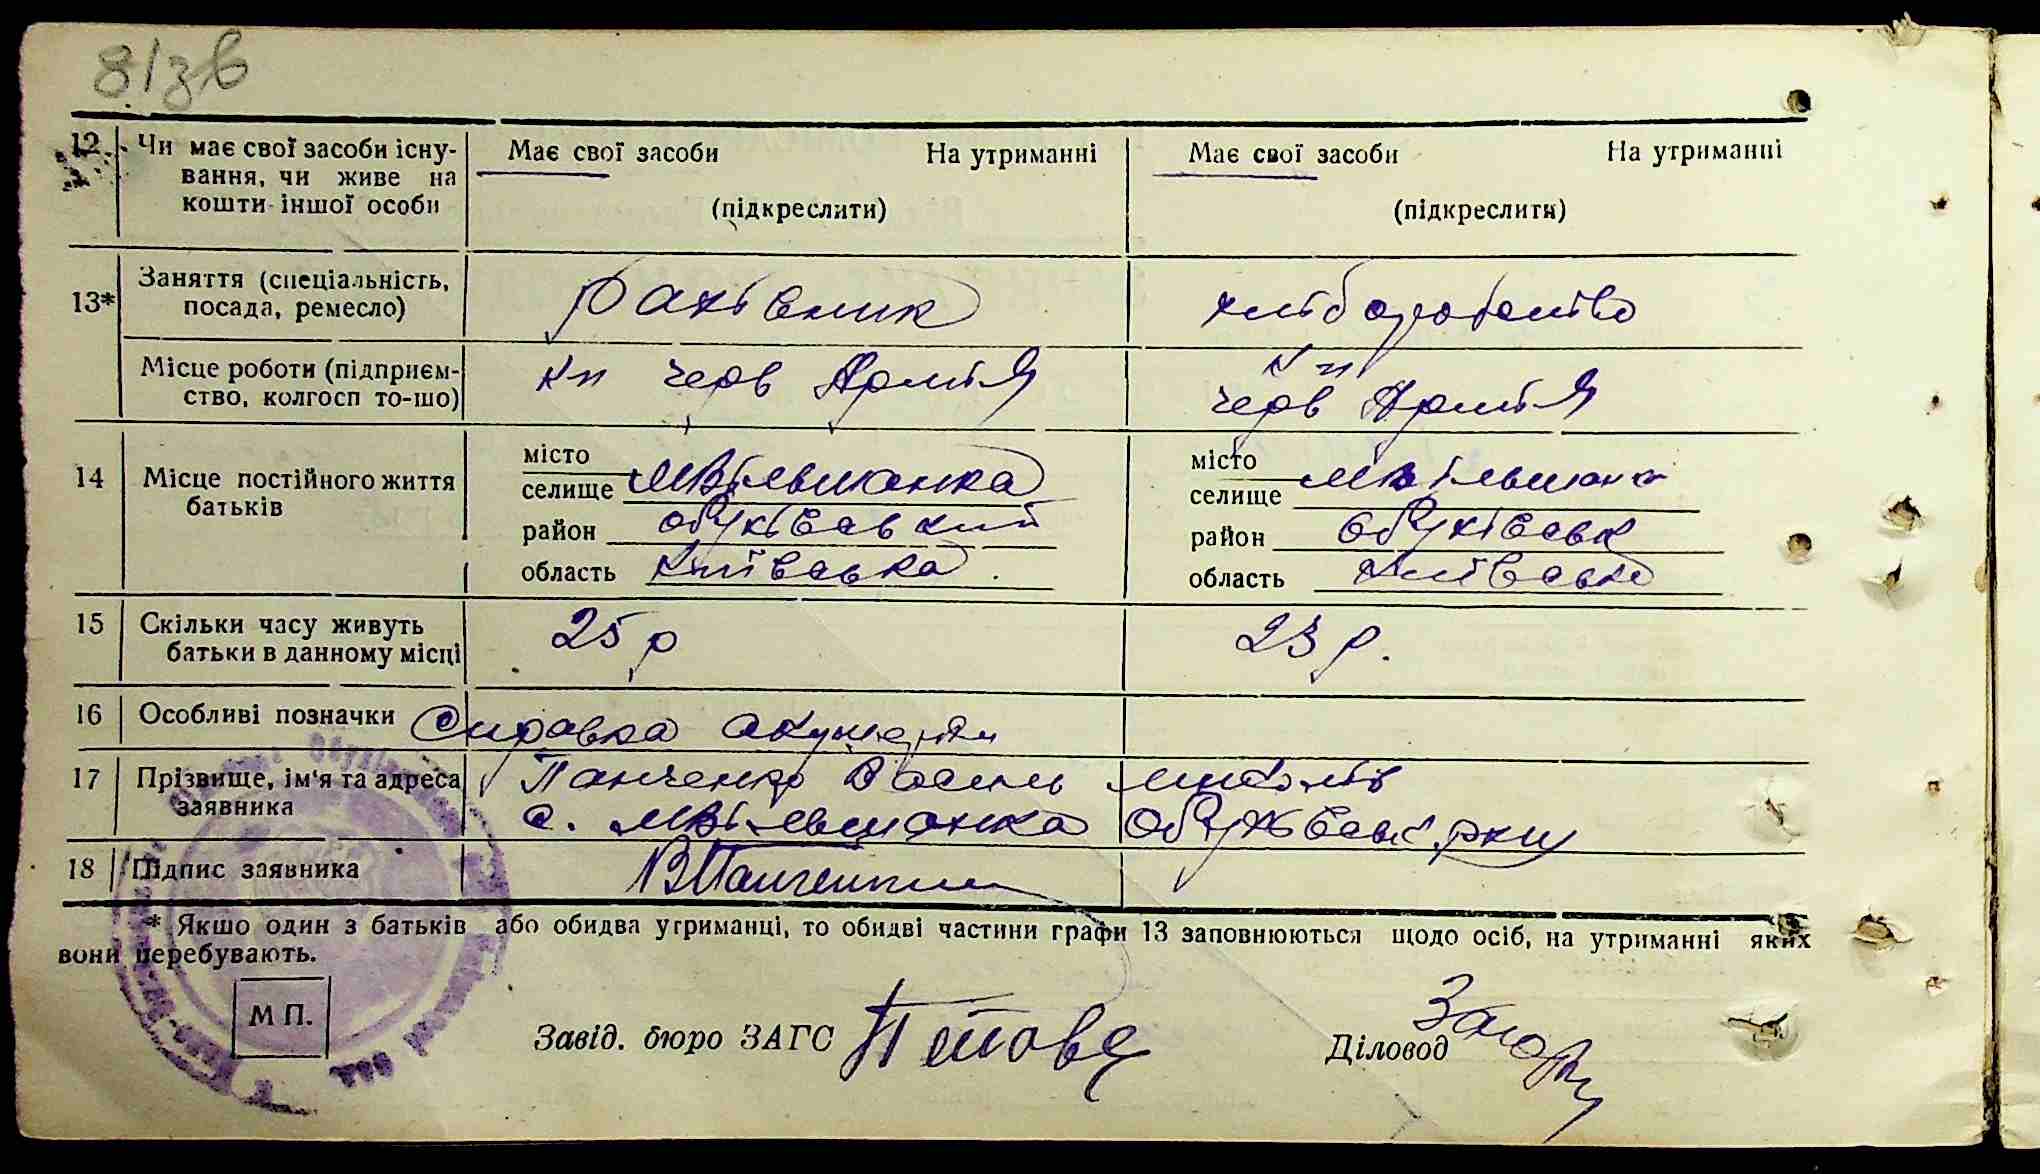 8/зв
12 Чи має свої засоби існу- Має свої засоби На утриманні Має свої засоби На утриманні
вання, чи живе на
кошти іншої особи (підкреслити) (підкреслити)
13* Заняття (спеціальність, Рахівник хліборобство
посада, ремесло)
Місце роботи (підприєм- Кп черв Армія Кп
ство, колгосп то-що) черв Армія
14 Місце постійного життя місто місто
батьків селище МВільшанка селище
район обухівський район обухівськ
область Київська . область Київська
15 Скільки часу живуть 25 р 23 р.
батьки в данному місці
16 Особливі позначки Справка акушерки
17 Прізвище, ім'я та адреса Панченко Василь
заявника с. МВільшанка
18 Підпис заявника ВПанченко
* Якшо один з батьків або обидва утриманці, то обидві частини графи 13 заповнюються щодо осіб, на утриманні яких
вони перебувають.
М П.
Завід. бюро ЗАГС Діловод